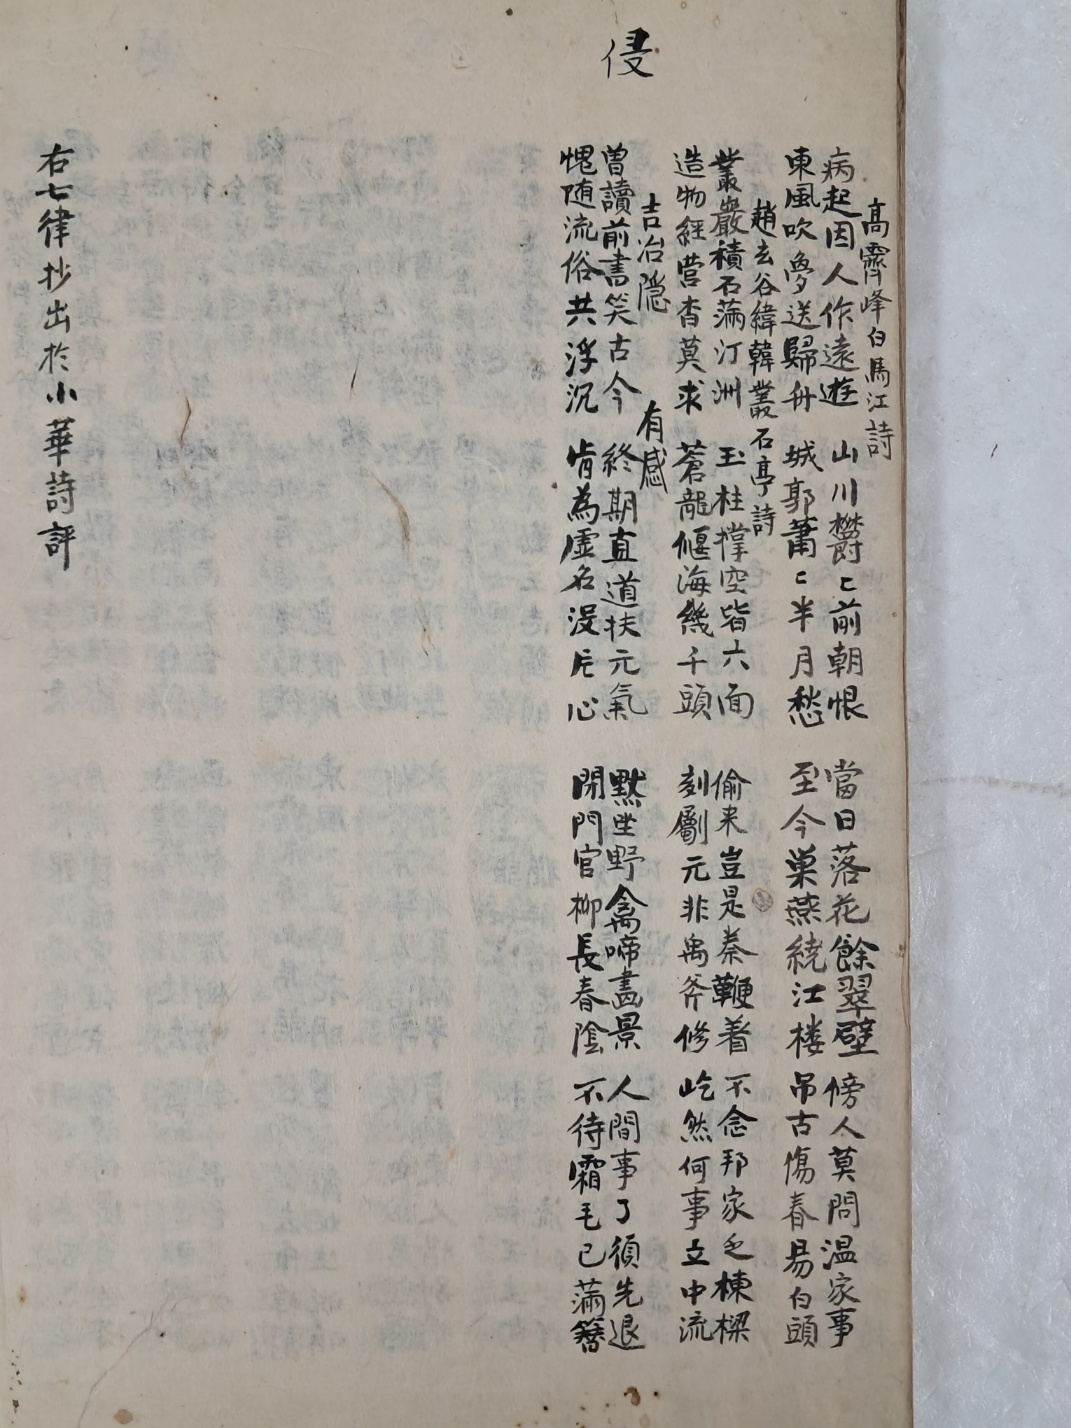 侵
高霽峰白馬江詩
病起因人作遠遊 山川欝〻前朝恨 當日落花餘翠壁 傍人莫問温家事
東風吹夢送歸舟 城郭蕭〻半月愁 至今巢燕繞江楼 吊古傷春易白頭
趙玄谷緯韓叢石亭詩
叢巖積石滿汀洲 玉柱撑空皆六面 偷来豈是秦鞭着 不念邦家乏棟樑
造物經营杳莫求 蒼龍偃海幾千頭 刻劚元非禹斧修 屹然何事立中流
吉冶隠 有感
曽讀前書笑古今 終期直道扶元氣 黙坐野禽啼晝景 人間事了須先退
愧随流俗共浮沉 肯為虚名没片心 閉門官柳長春陰 不待霜毛已滿簪
右七律抄出於小華詩評